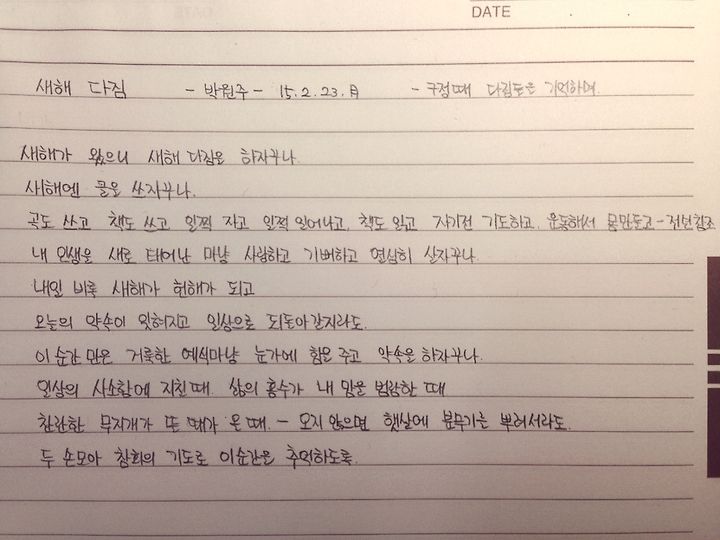 DATE . .
새해 다짐 - 박원주 - 15. 2. 23. 月 - 구정때 다림도를 기억하며.
새해가 왔으니 새해 다짐을 하자꾸나.
새해엔 글을 쓰자꾸나.
곡도 쓰고 책도 쓰고 일찍 자고 일찍 일어나고, 책도 읽고 자기전 기도하고, 운동해서 몸만들고 - 전년참조
내 인생을 새로 태어난 마냥 사랑하고 기뻐하고 열심히 살자꾸나.
내일 비록 새해가 헌해가 되고
오늘의 약속이 잊혀지고 일상으로 되돌아갈지라도.
이 순간 만은 거룩한 예식마냥 눈가에 힘을 주고 약속을 하자꾸나.
일상의 사소함에 지친 때. 삶의 홍수가 내 맘을 범람한 때
찬란한 무지개가 뜰 때가 올 때. - 오지 않으면 햇살에 분무기를 뿌려서라도.
두 손모아 참회의 기도로 이순간을 추억하도록.